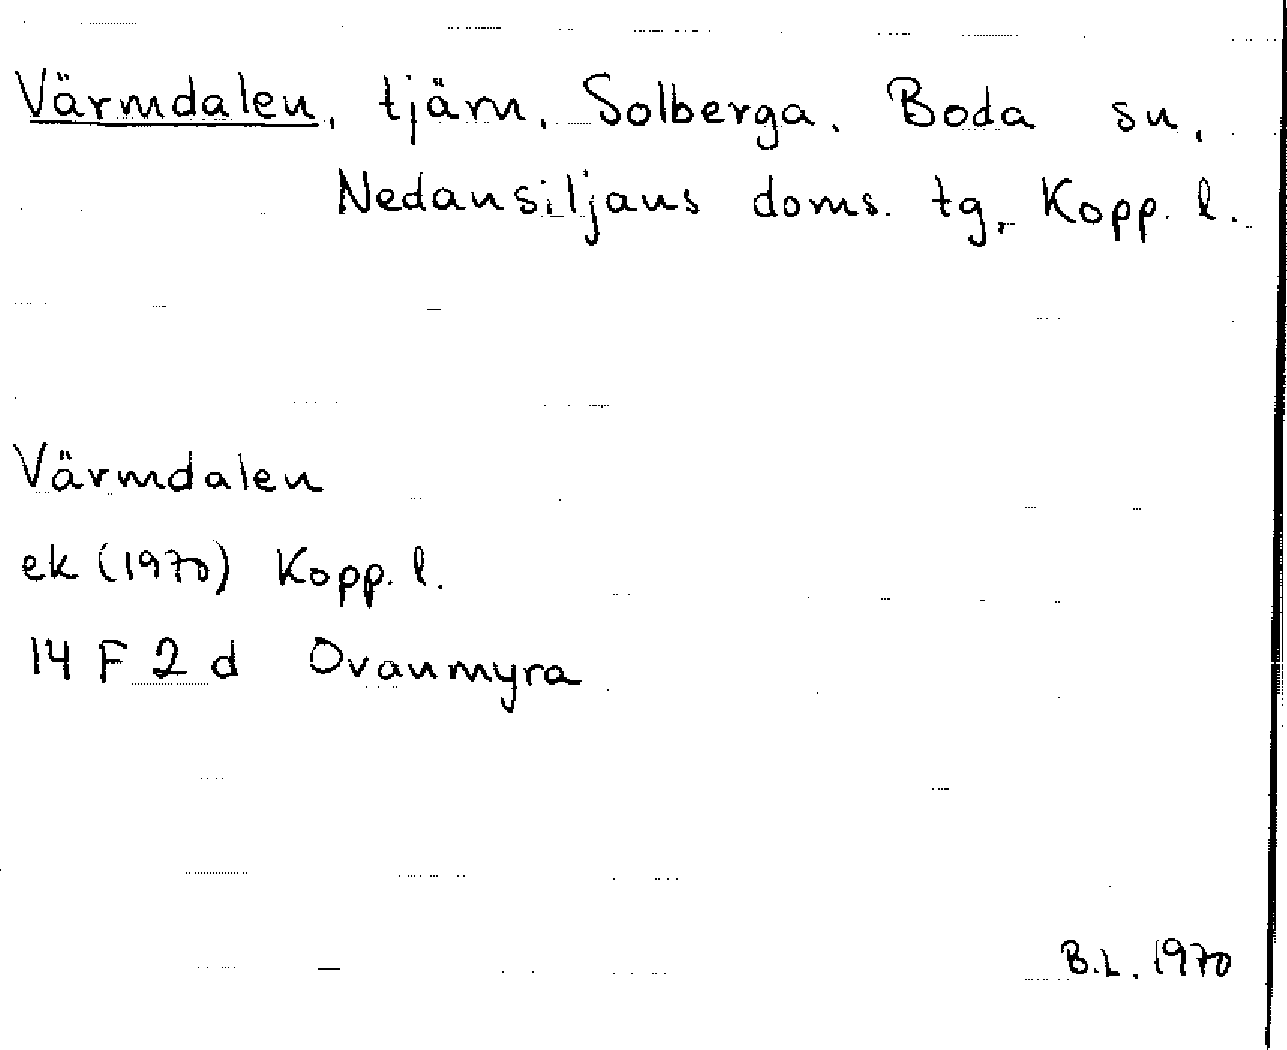 Värmdalen, tjärn, Solberga, Boda sn,
Nedansiljans doms. tg, Kopp. l.
Värmdalen
ek (1970) Kopp. l.
14 F 2 d Ovanmyra
B.L. 1970